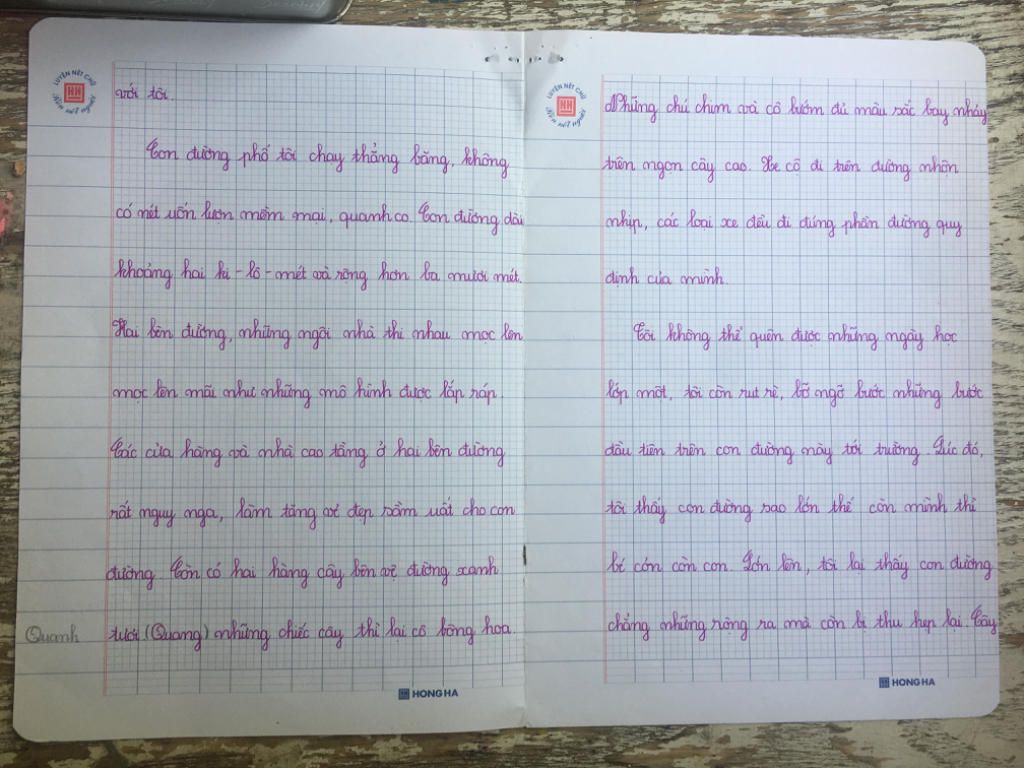 LUYỆN NÉT CHỮ
HH
Rèn nết người
với tôi.
Con đường phố tôi chạy thẳng băng, không
có nét uốn lượn mềm mại, quanh co. Con đường dài
khoảng hai ki-lô-mét và rộng hơn ba mươi mét.
Hai bên đường, những ngôi nhà thi nhau mọc lên
mọc lên mãi như những mô hình được lắp ráp.
Các cửa hàng và nhà cao tầng ở hai bên đường
rất nguy nga, làm tăng vẻ đẹp sầm uất cho con
đường. Còn có hai hàng cây bên vệ đường xanh
Quanh
tươi (Quang) những chiếc cây thì lại có bông hoa.
HH HONG HA
LUYỆN NÉT CHỮ
HH
Rèn nết người
Những chú chim và cô bướm đủ màu sắc bay nhảy
trên ngọn cây cao. Xe cộ đi trên đường nhộn
nhịp, các loại xe đều đi đúng phần đường quy
định của mình.
Tôi không thể quên được những ngày học
lớp một, tôi còn rụt rè, bỡ ngỡ bước những bước
đầu tiên trên con đường này tới trường. Lúc đó,
tôi thấy con đường sao lớn thế còn mình thì
bé cón còn con. Lớn lên, tôi lại thấy con đường
chẳng những rộng ra mà còn bị thu hẹp lại. Cây
HH HONG HA